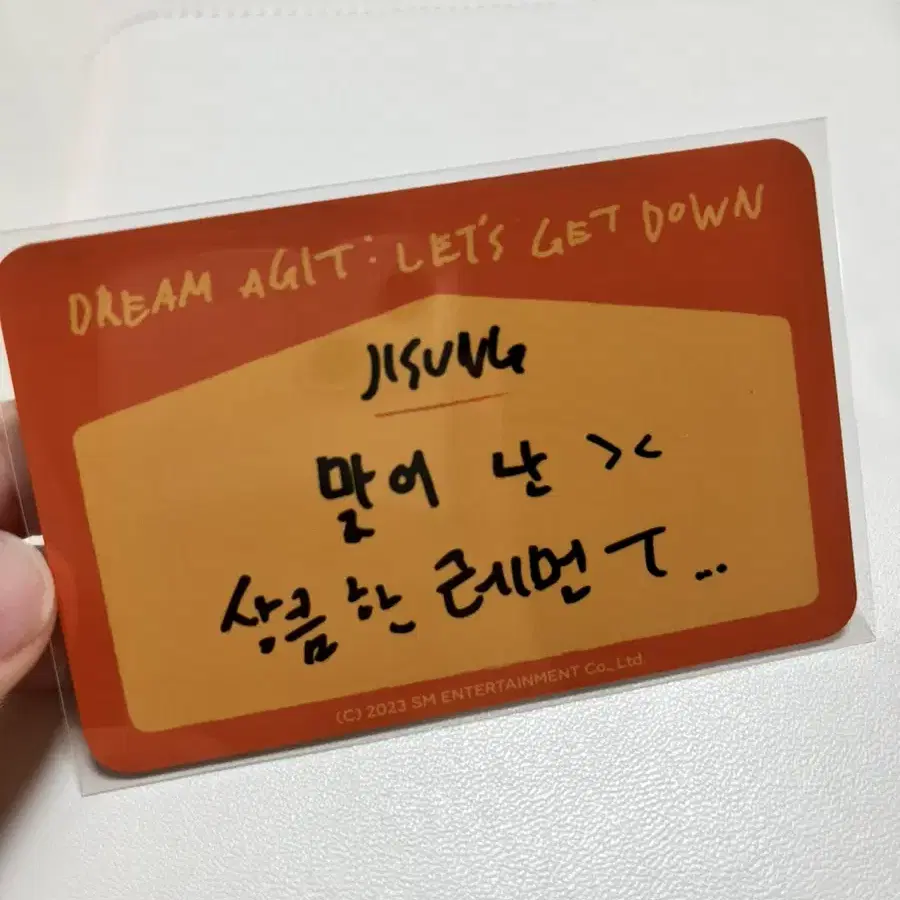 DREAM AGIT: LET'S GET DOWN
JISUNG
말어 난 ><
상큼한 레먼 T...
(C) 2023 SM ENTERTAINMENT Co., Ltd